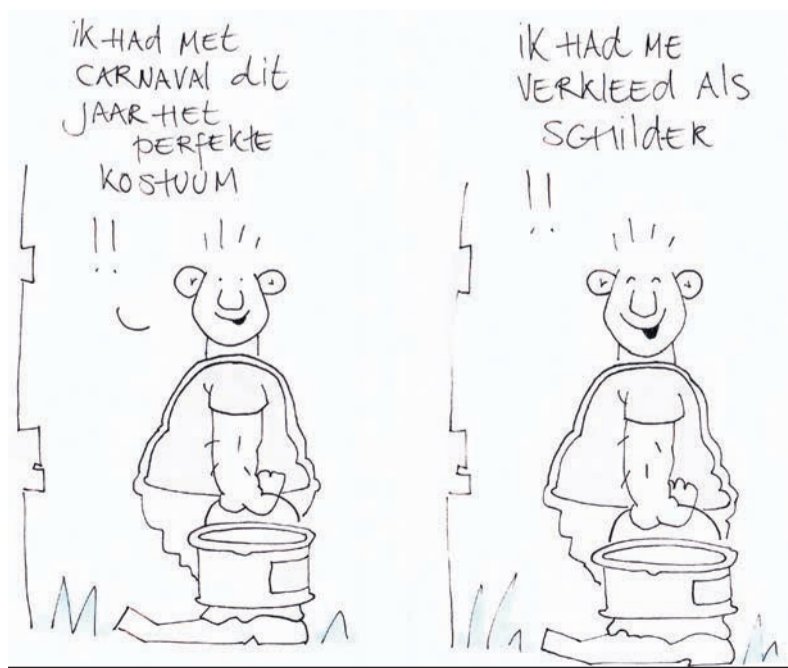 iK HAd MET
CARNAVAl dit
JAAR HET
PERFEKTE
KOSTUUM
!!
iK HAd ME
VERKlEEd Als
SCHildER
!!